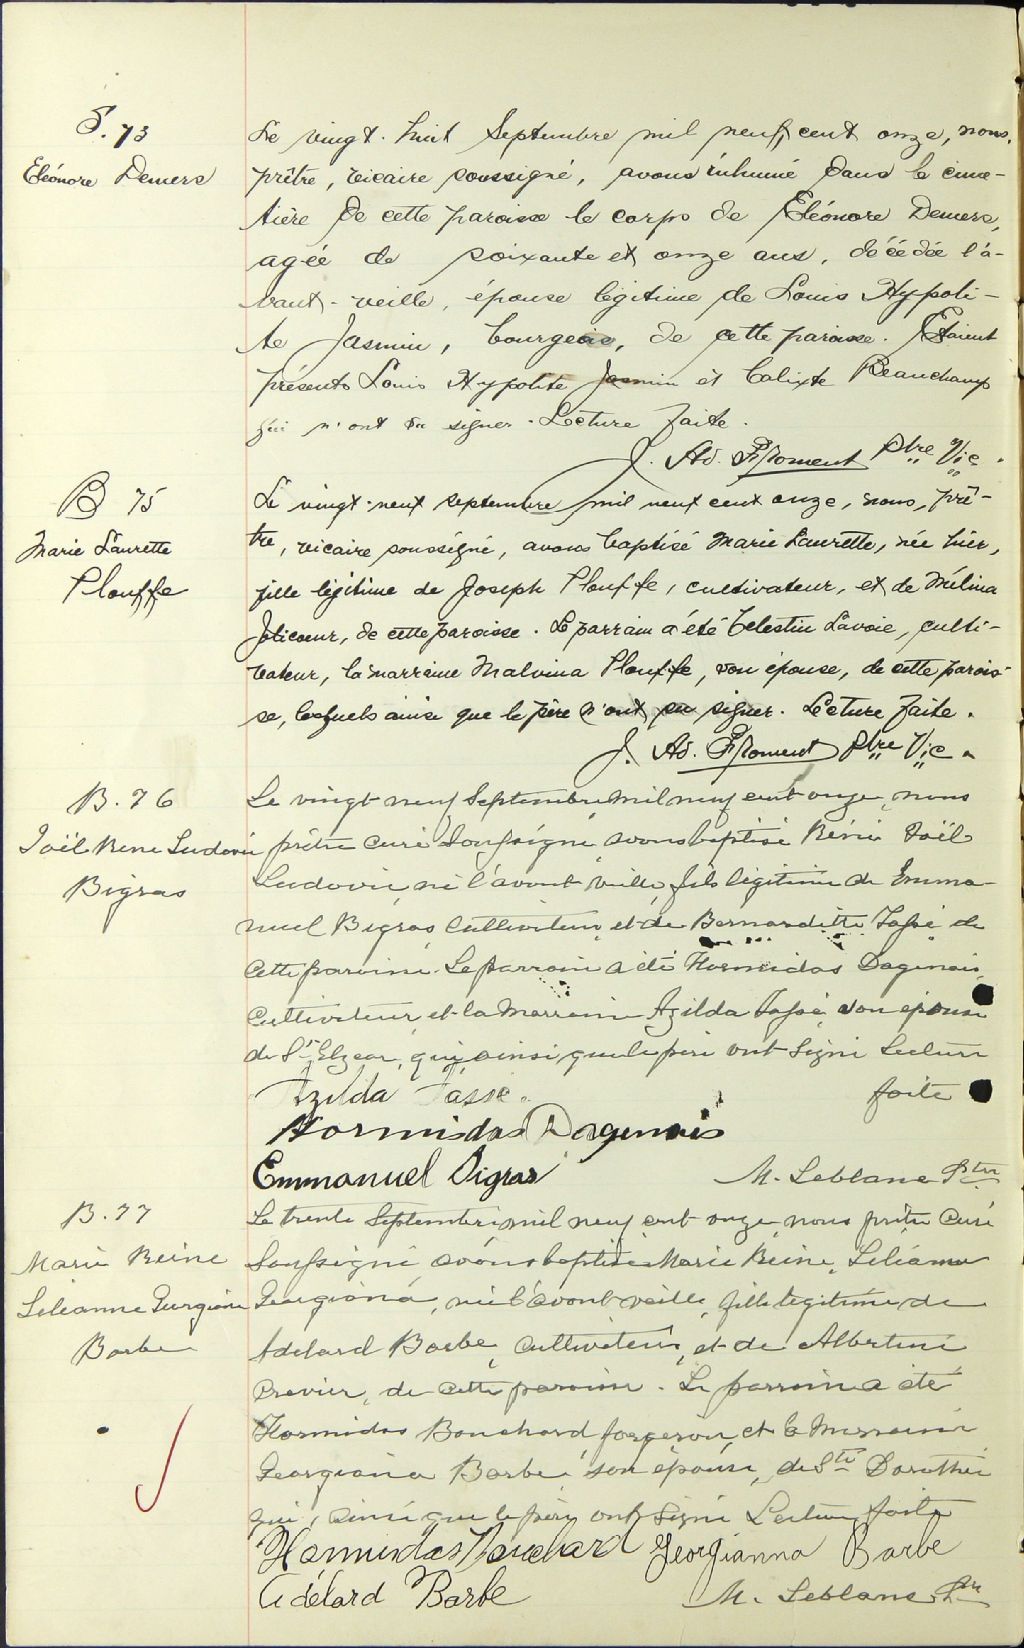 S. 73
Eléonore Demers
Le vingt-huit Septembre mil neuf cent onze, nous,
prêtre, vicaire soussigné, avons inhumé dans le cime-
tière de cette paroisse le corps de Eléonore Demers,
agée de soixante et onze ans, décédée l'a-
vant-veille, épouse légitime de Louis Hypoli-
te Jasmin, bourgeois, de cette paroisse. Etaient
présents Louis Hypolite Jasmin et Calixte Beauchamp
qui n'ont su signer. Lecture faite.
J. Ad. Froment Ptre Vic.
B 75
Marie Laurette
Plouffe
Le vingt-neuf septembre mil neuf cent onze, nous, prê-
tre, vicaire soussigné, avons baptisé Marie Laurette, née hier,
fille légitime de Joseph Plouffe, cultivateur, et de Mélina
Jolicoeur, de cette paroisse. Le parrain a été Célestin Lavoie, culti-
vateur, la marraine Malvina Plouffe, son épouse, de cette parois-
se, lesquels ainsi que le père n'ont pu signer. Lecture faite.
J. Ad. Froment Ptre Vic.
B. 76
Joël Rene Ludovic
Bigras
Le vingt neuf Septembre mil neuf cent onze, nous
prêtre curé Soussigné avons baptisé Réné Joël
Ludovic né l'avant veille, fils légitime de Emma-
nuel Bigras, Cultivateur, et de Bernardette Tassé de
cette paroisse. Le parrain a été Hormidas Dagenais,
Cultivateur, et la Marraine Azilda Tassé, son épouse
de St Elzear, qui, ainsi que le père ont signé Lecture
faite
Azilda Tasse.
Hormidas Dagenais
Emmanuel Bigras
M. Leblanc Ptre
B. 77
Marie Reine
Lilianne Gurgiane
Barbe
Le trente Septembre mil neuf cent onze nous prêtre Curé
Soussigné avons baptisé Marie Reine, Lilianne
Georgiana, née l'avant veille, fille légitime de
Adelard Barbe, Cultivateur, et de Albertine
Crevier, de cette paroisse. Le parrain a été
Hormidas Bouchard forgeron, et la Marraine
Georgiana Barbe, son épouse, de Ste Dorothée
qui, ainsi que le père ont signé Lecture faite
Hormidas Bouchard Georgianna Barbe
Adélard Barbe
M. Leblanc Ptre